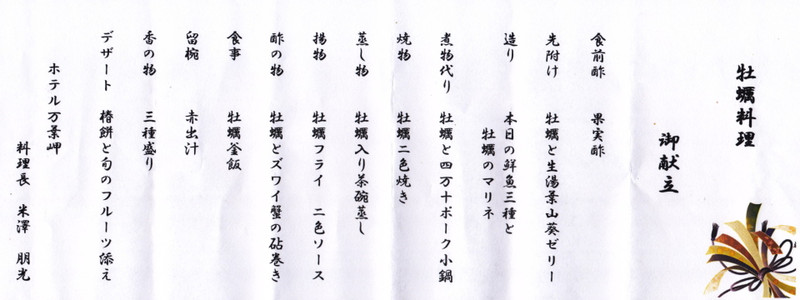 牡蠣料理
御献立
食前酢　果実酢
先附け　牡蠣と生湯葉山葵ゼリー
造り　本日の鮮魚三種と
牡蠣のマリネ
煮物代り　牡蠣と四万十ポーク小鍋
焼物　牡蠣二色焼き
蒸し物　牡蠣入り茶碗蒸し
揚物　牡蠣フライ　二色ソース
酢の物　牡蠣とズワイ蟹の砧巻き
食事　牡蠣釜飯
留椀　赤出汁
香の物　三種盛り
デザート　椿餅と旬のフルーツ添え
ホテル万景岬
料理長　米澤　朋光